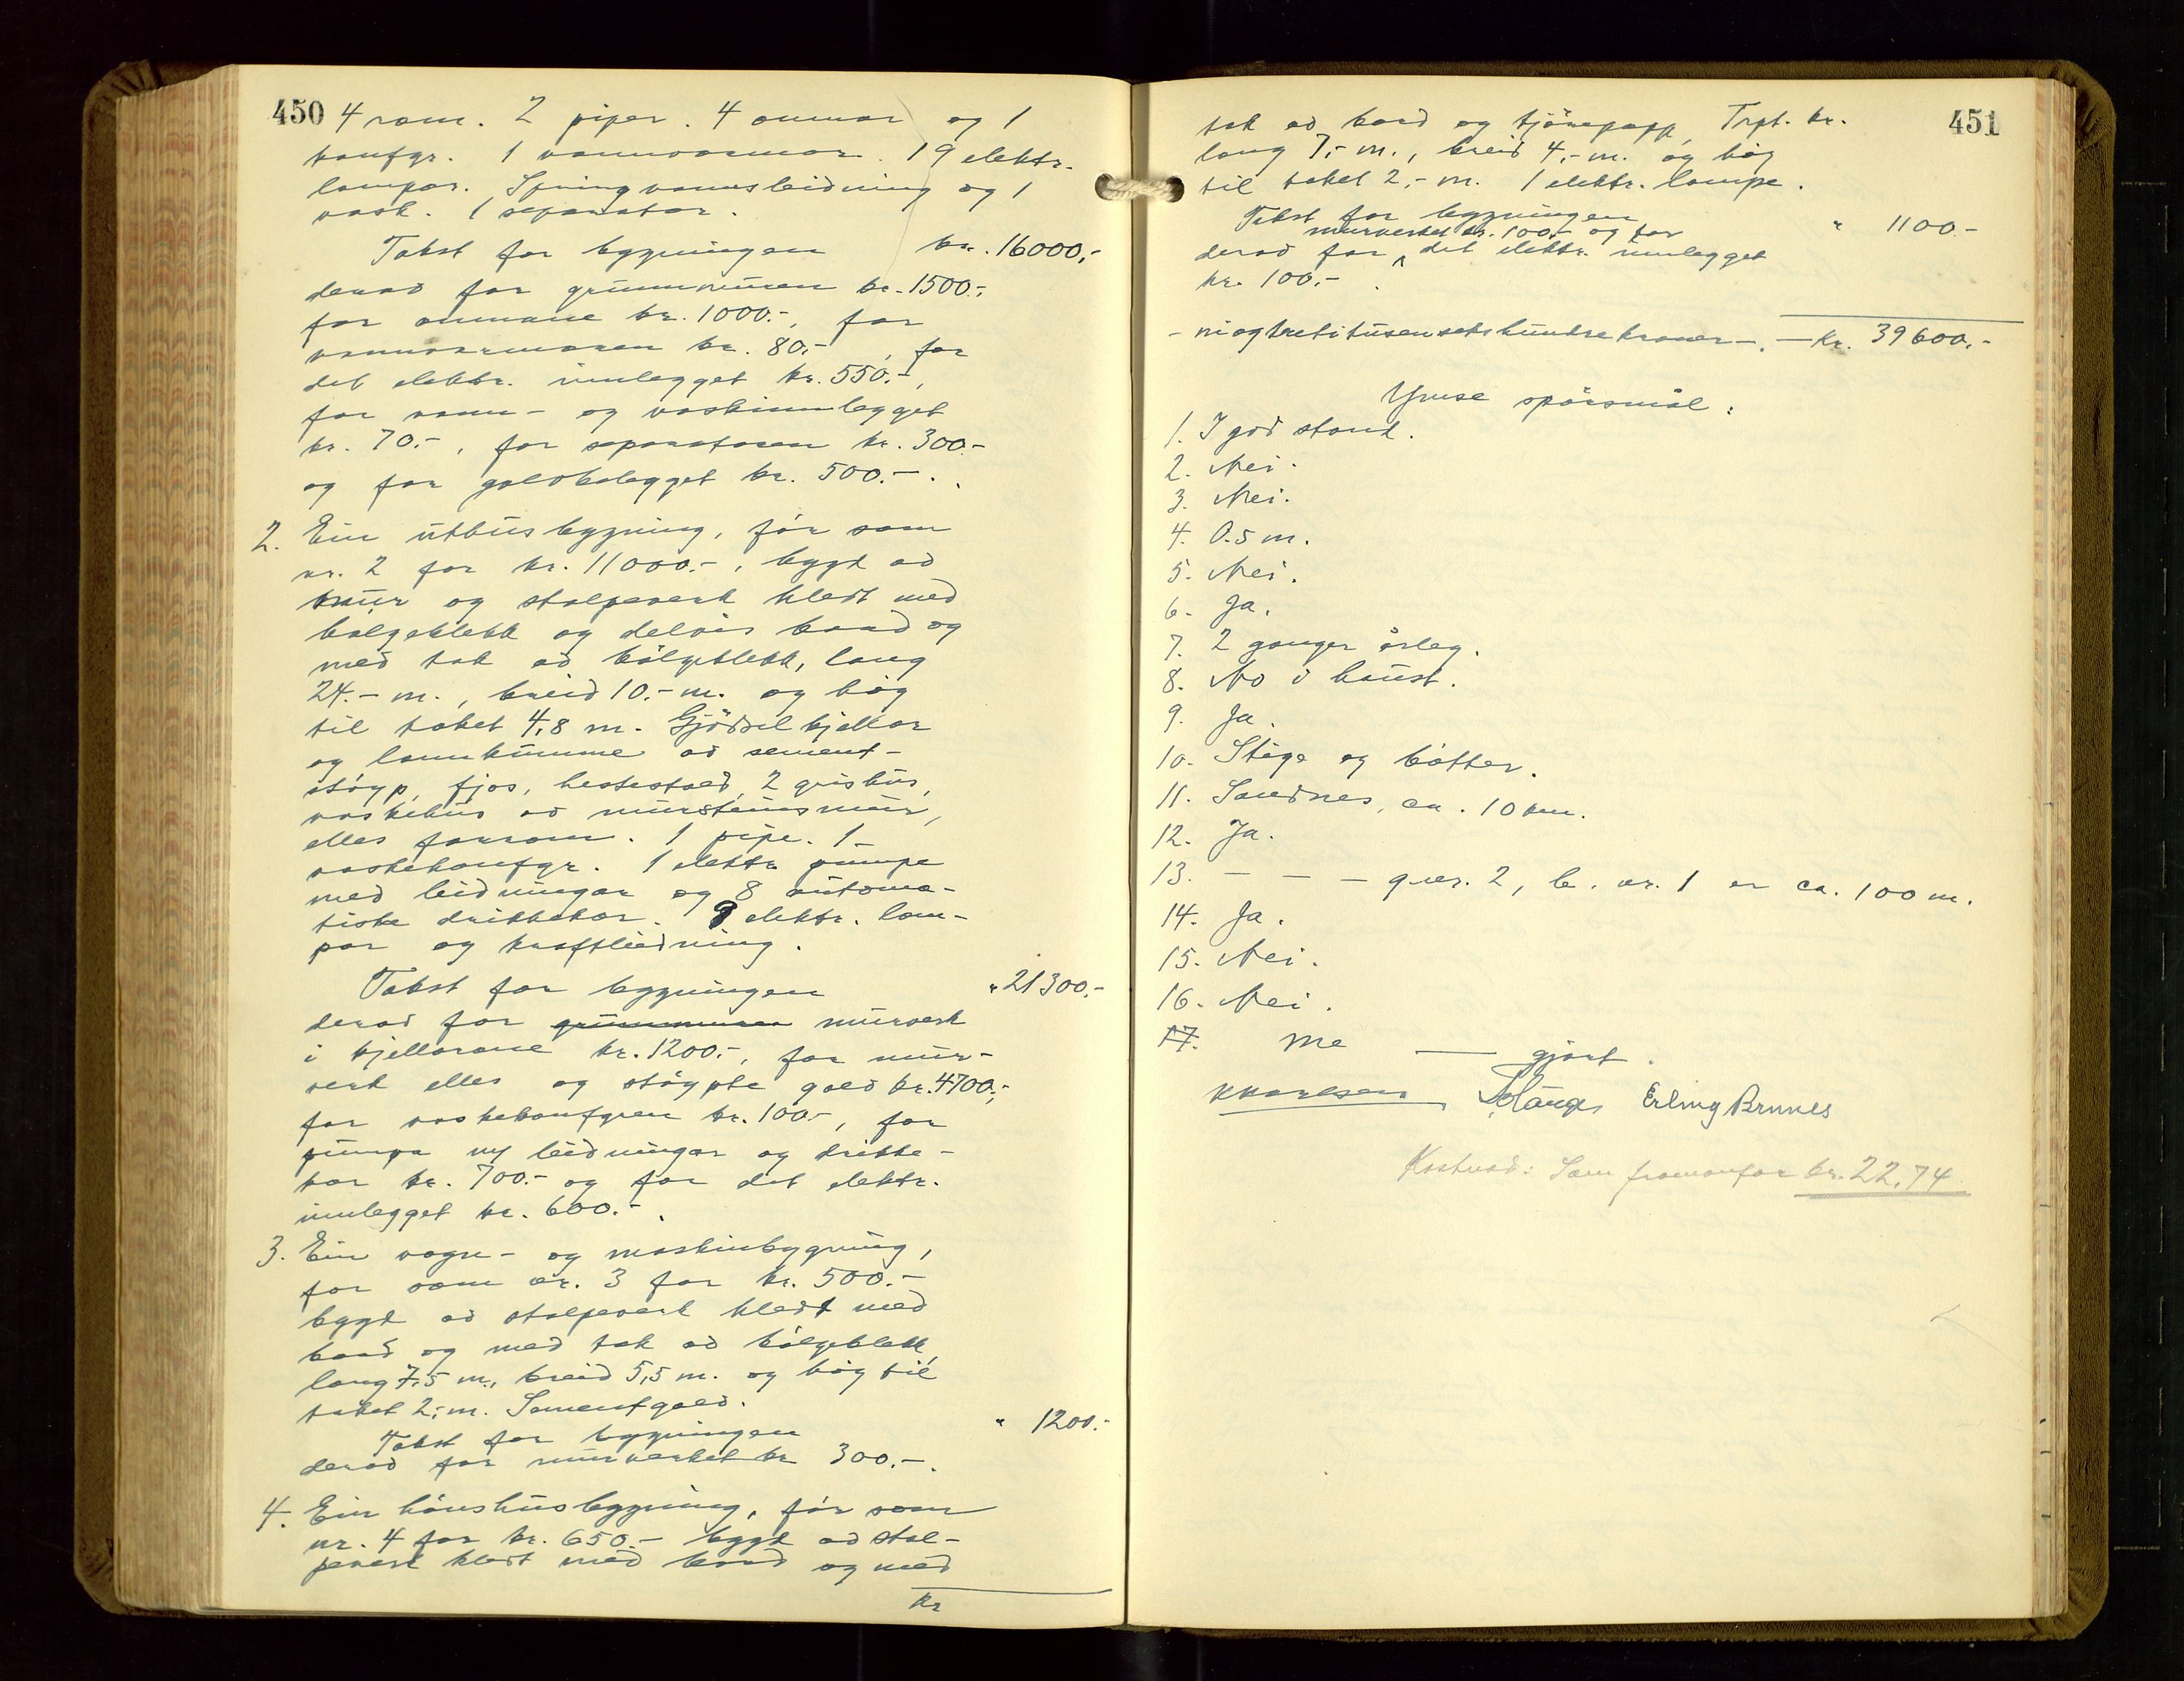 450
4 rom. 2 piper. 4 omnar og 1
konfyr. 1 vannvarmar. 19 elektr.
lampar. Springvannsleidning og 1
vask. 1 separator.
Takst for bygningen kr. 16000,-
derav for grunnmuren kr. 1500.-,
for omnane kr. 1000.-, for
vannvarmaren kr. 80,-, for
det elektr. innlegget kr. 550.-,
for vann- og vaskinnlegget
kr. 70.-, for separatoren kr. 300.-
og for golvbelegget kr. 500.-.
2. Ein uthusbygning, för som
nr. 2 for kr. 11000.-, bygt av
mur og stolpeverk kledt med
bölgeblekk og delvis bord og
med tak av bölgeblekk, lang
24.- m., breid 10.- m. og hög
til taket 4,8 m. Gjödselkjellar
og lannkumme av sement-
stöyp, fjos, hestestall, 2 grishus,
vaskehus av murstensmur,
elles forrom. 1 pipe. 1
vaskekonfyr. 1 elektr. pumpe
med leidningar og 8 automa-
tiske drikkekar. 9 elektr. lam-
par og kraftleidning.
Takst for bygningen " 21300.-
derav for grunnmuren murverk
i kjellarane kr. 1200.-, for mur-
verk elles og stöypte golv kr. 4700.-,
for vaskekonfyren kr. 100.-, for
pumpa m/ leidningar og drikke-
kar kr. 700.- og for det elektr.
innlegget kr. 600.-.
3. Ein vogn- og maskinbygning,
för som nr. 3 for kr. 500.-
bygt av stolpeverk kledt med
bord og med tak av bölgeblekk,
lang 7,5 m., breid 5,5 m. og hög til
taket 2,- m. Sementgolv.
Takst for bygningen " 1200.-
derav for murverket kr 300.-.
4. Ein hönshusbygning, för som
nr. 4 for kr. 650.- bygt av stol-
peverk kledt med bord og med
kr
451
tak av bord og tjörepapp, Trpt. kr.
lang 7,- m., breid 4,- m. og hög
til taket 2,- m. 1 elektr. lampe.
Takst for bygningen " 1100.-
murverket kr. 100.- og for
derav for ^ det elektr. innlegget
kr. 100.-.
- niogtrettitusensekshundrekroner -. - Kr. 39600.-
Ymse spörsmål:
1. I god stand.
2. Nei.
3. Nei.
4. 0.5 m.
5. Nei.
6. Ja.
7. 2 ganger årleg.
8. No i haust.
9. Ja.
10. Stige og bötter.
11. Sandnes, ca. 10 km.
12. Ja.
13. - - - g.nr. 2, b. nr. 1 er ca. 100 m.
14. Ja.
15. Nei.
16. Nei.
17. Me — gjort.
K Karlsen Erling Brunes
Kostnad: Som framanfor kr. 22,74